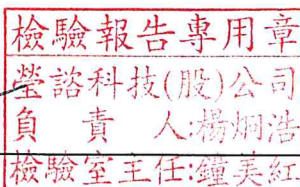 檢驗報告專用章
瑩諮科技(股)公司
負責人:楊烱浩
檢驗室主任:鐘美紅